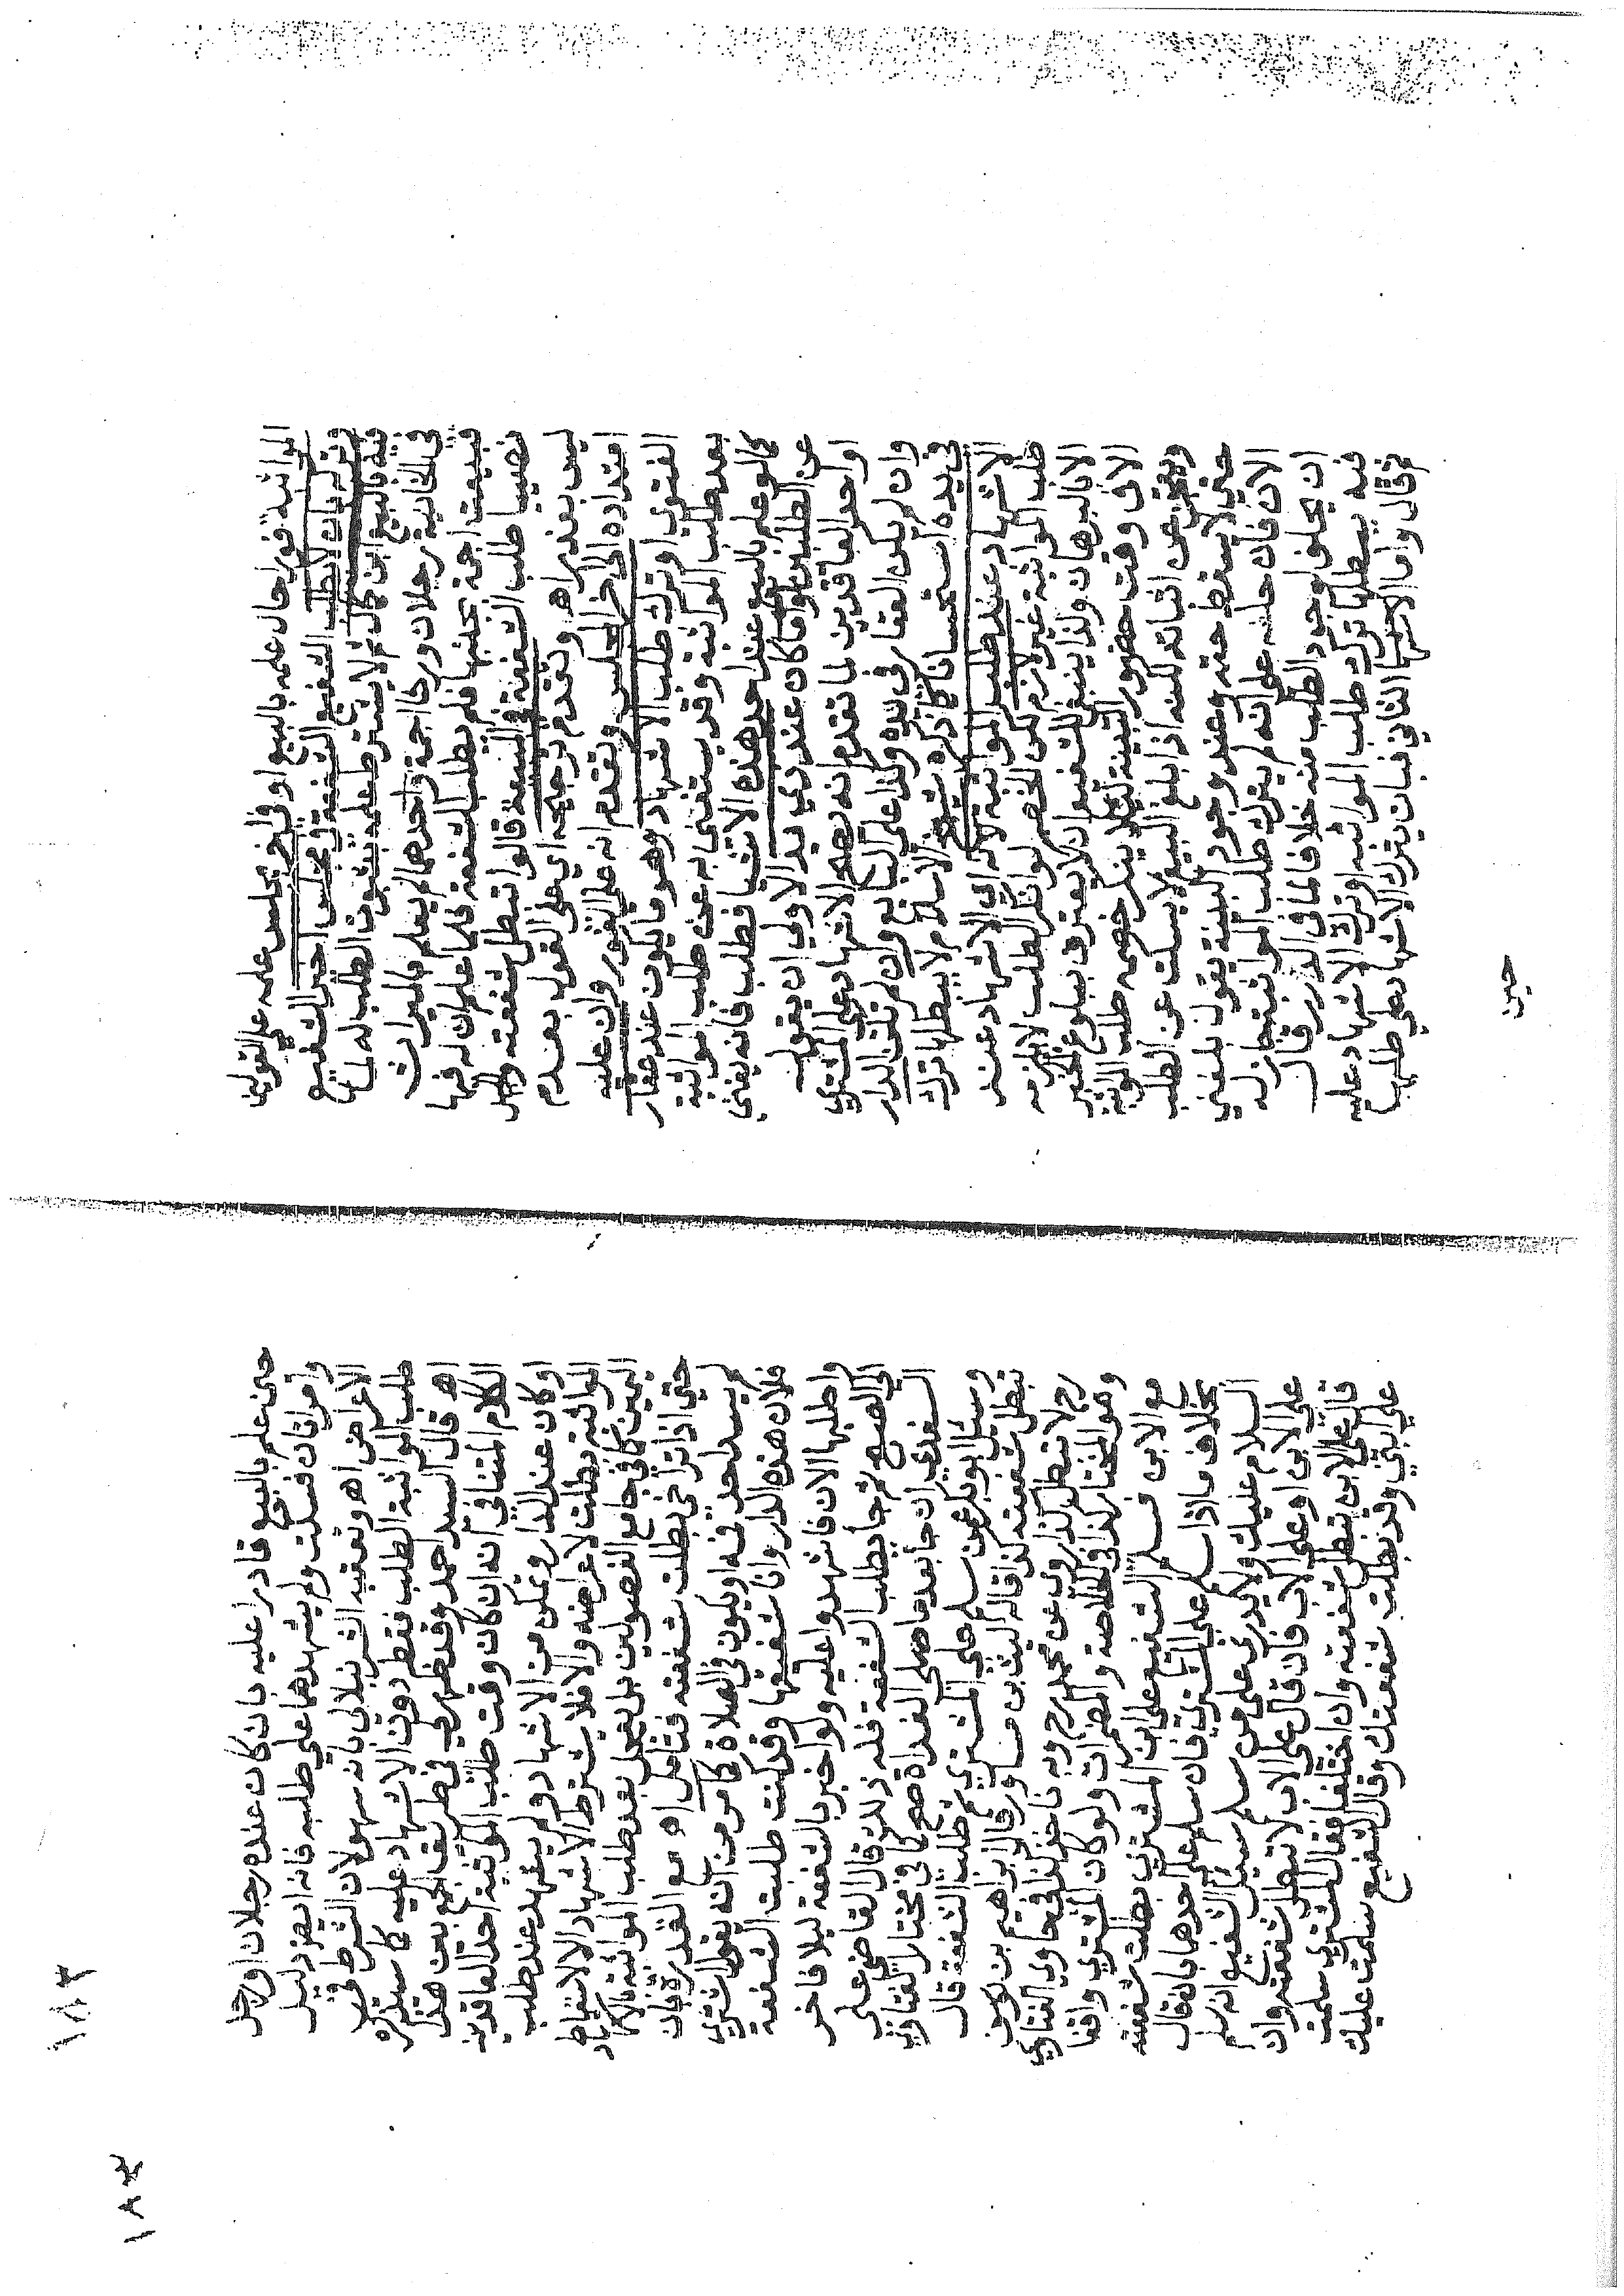 المواثبة فور احال علمه بالبيع او في اخر مجلس علمه على القولين
وتركه بان لا يطلب الشفيع الشفعة في مجلس اخبر الشفيع
فيه بالبيع ابن كمال ثم لا يشترط علمه بثبوت الطلب له لما
في الخانية رجلان ورثا اجمة واحدهما لم يعلم بالميراث
فبيعت اجمة بجنبها فلم يطلب الشفعة فلما علم ان له فيها
نصيبا طلب الشفعة في المبيعة قالوا تبطل شفعته والجهل
ليس بعذر اه وتقدم ترجيحه اي على القول بعدم
امتداده الى اخر المجلس وتقدم انه على الفور وان عليه
الفتوى او ترك طلب الاشهاد وهو ما يكون عند عقار
بعد طلب المواثبة وقد يستغنى به عن طلب المواثبة
كما لو علم بالبيع عند احد هذه الاشيا فطلب فانه يغني
عن الطلبين هو ما كان عند ذي يد الاولى ان يقول
او احد العاقدين لما تقدم انه يصح الاشهاد على المشتري
وان لم يكن العقار في يده وكذا على البايع وان لم تكن الدار
في يده استحسانا كما ذكره شيخ الاسلام لا يبطلها ترك
الاشهاد عند طلب المواثبة لانه اي الاشهاد عند
طلب المواثبة غير لازم لكن الخصم لو انكر الطلب لا يلزمه
الا بالبرهان ولذا ينبغي للشفيع ان لا يعترف ببلوغ الخبر
الا في وقت حضور البينة لئلا ينكر خصمه طلب المواثبة
ويعجز عن اثباته لكنه اذا بلغ البيع لا يسكت عن الطلب
حتى لا يسقط حقه وعند وجود البينة يقول بلغني
الان فان حلف على انه لم يترك طلب المواثبة جاز له
ان يحلف لوجود الطلب منه خلافا لما في الدرر قال
فيه يبطلها ترك طلب المواثبة او ترك الاشهاد عليه
ثم قال واما الثاني فبان يترك الاشهاد على طلبها
حين
١٨٣
١٨٣
حين علم بالبيع قادرا عليه بان كان عنده رجلان او رجل
وامراتان فسكت ولم يشهدهما على طلبه فانه ايضا دليل
الاعراض اه وتعقبه الشرنبلالي بانه سهو لان الشرط في
طلب المواثبة الطلب فقط دون الاشهاد عليه كما سيذكره
اه قال السيد احمد وقد ظهر لي في طريق الجمع بين هذا
الكلام المتنافي انه ان كان وقت طلب المواثبة احد العاقدين
او كان عند الدار وتمكن من الاشهاد ولم يشهد عند طلب
المواثبة بطلت لاعراضه والا فلا يشترط الاشهاد الا لاسقاط
اليمين كما في جامع الفصولين بل يفعل بعد طلب المواثبة بالاشهاد
حتى اذا تراخى بطلت شفعته فتامل اه مع القدرة بان
لم يسد احد فمه او يكون في الصلاة كما مر من انه يقول اشترى
فلان هذه الدار وانا شفيعها وقد كنت طلبت الشفعة
واطلبها الان فاشهدوا عليه ولو اخبر بالشفعة ليلا فاخر
الى الصبح ثم جا يطلب الشفعة فله ذلك قال القاضي علي
السغدي ان جا بعد ما صلى الغداة صح كما في مختار الفتاوي
وسئل ابو بكر عمن سلم على المشتري ثم طلب الشفعة قال
تبطل شفعته كذا قاله الليث بن مساور قال ابراهيم بن يوسف
رح لا تبطل كذا روي عن محمد رح وبه ناخذ كذا في حاوي الفتاوي
وهو المختار كذا في الخلاصة والمضمرات ولو كان المشتري واقفا
مع الابن فسلم الشفيع على ابن المشتري بطلت شفعته
بخلاف ما اذا سلم على المشتري فان سلم على احدهما بان قال
السلام عليك ولا يدرى على من سلم سئل الشفيع انه سلم
على الابن او على الاب فان قال على الاب لا تبطل شفعته وان
قال على الابن تبطل شفعته وان اختلفا فقال المشتري سلمت
على ابني وقد بطلت شفعتك وقال الشفيع سلمت عليك